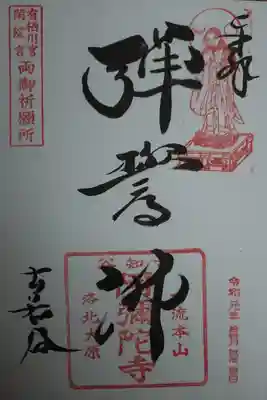 奉拝
彈誓佛
古知谷
有栖川宮
閑院宮
両御祈願所
流本山
阿彌陀寺
洛北大原
令和元年